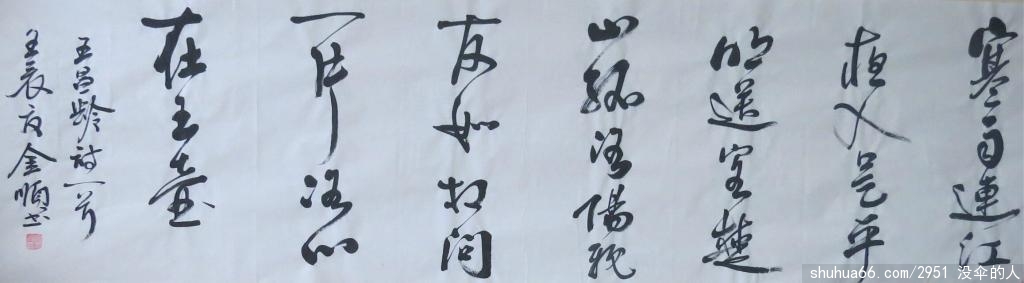 寒雨連江
夜入吴平
明送客楚
山孤洛陽親
友如相问
一片冰心
在玉壶
王昌龄诗一首
壬辰夏金順书
shuhua66.com/2951 没伞的人